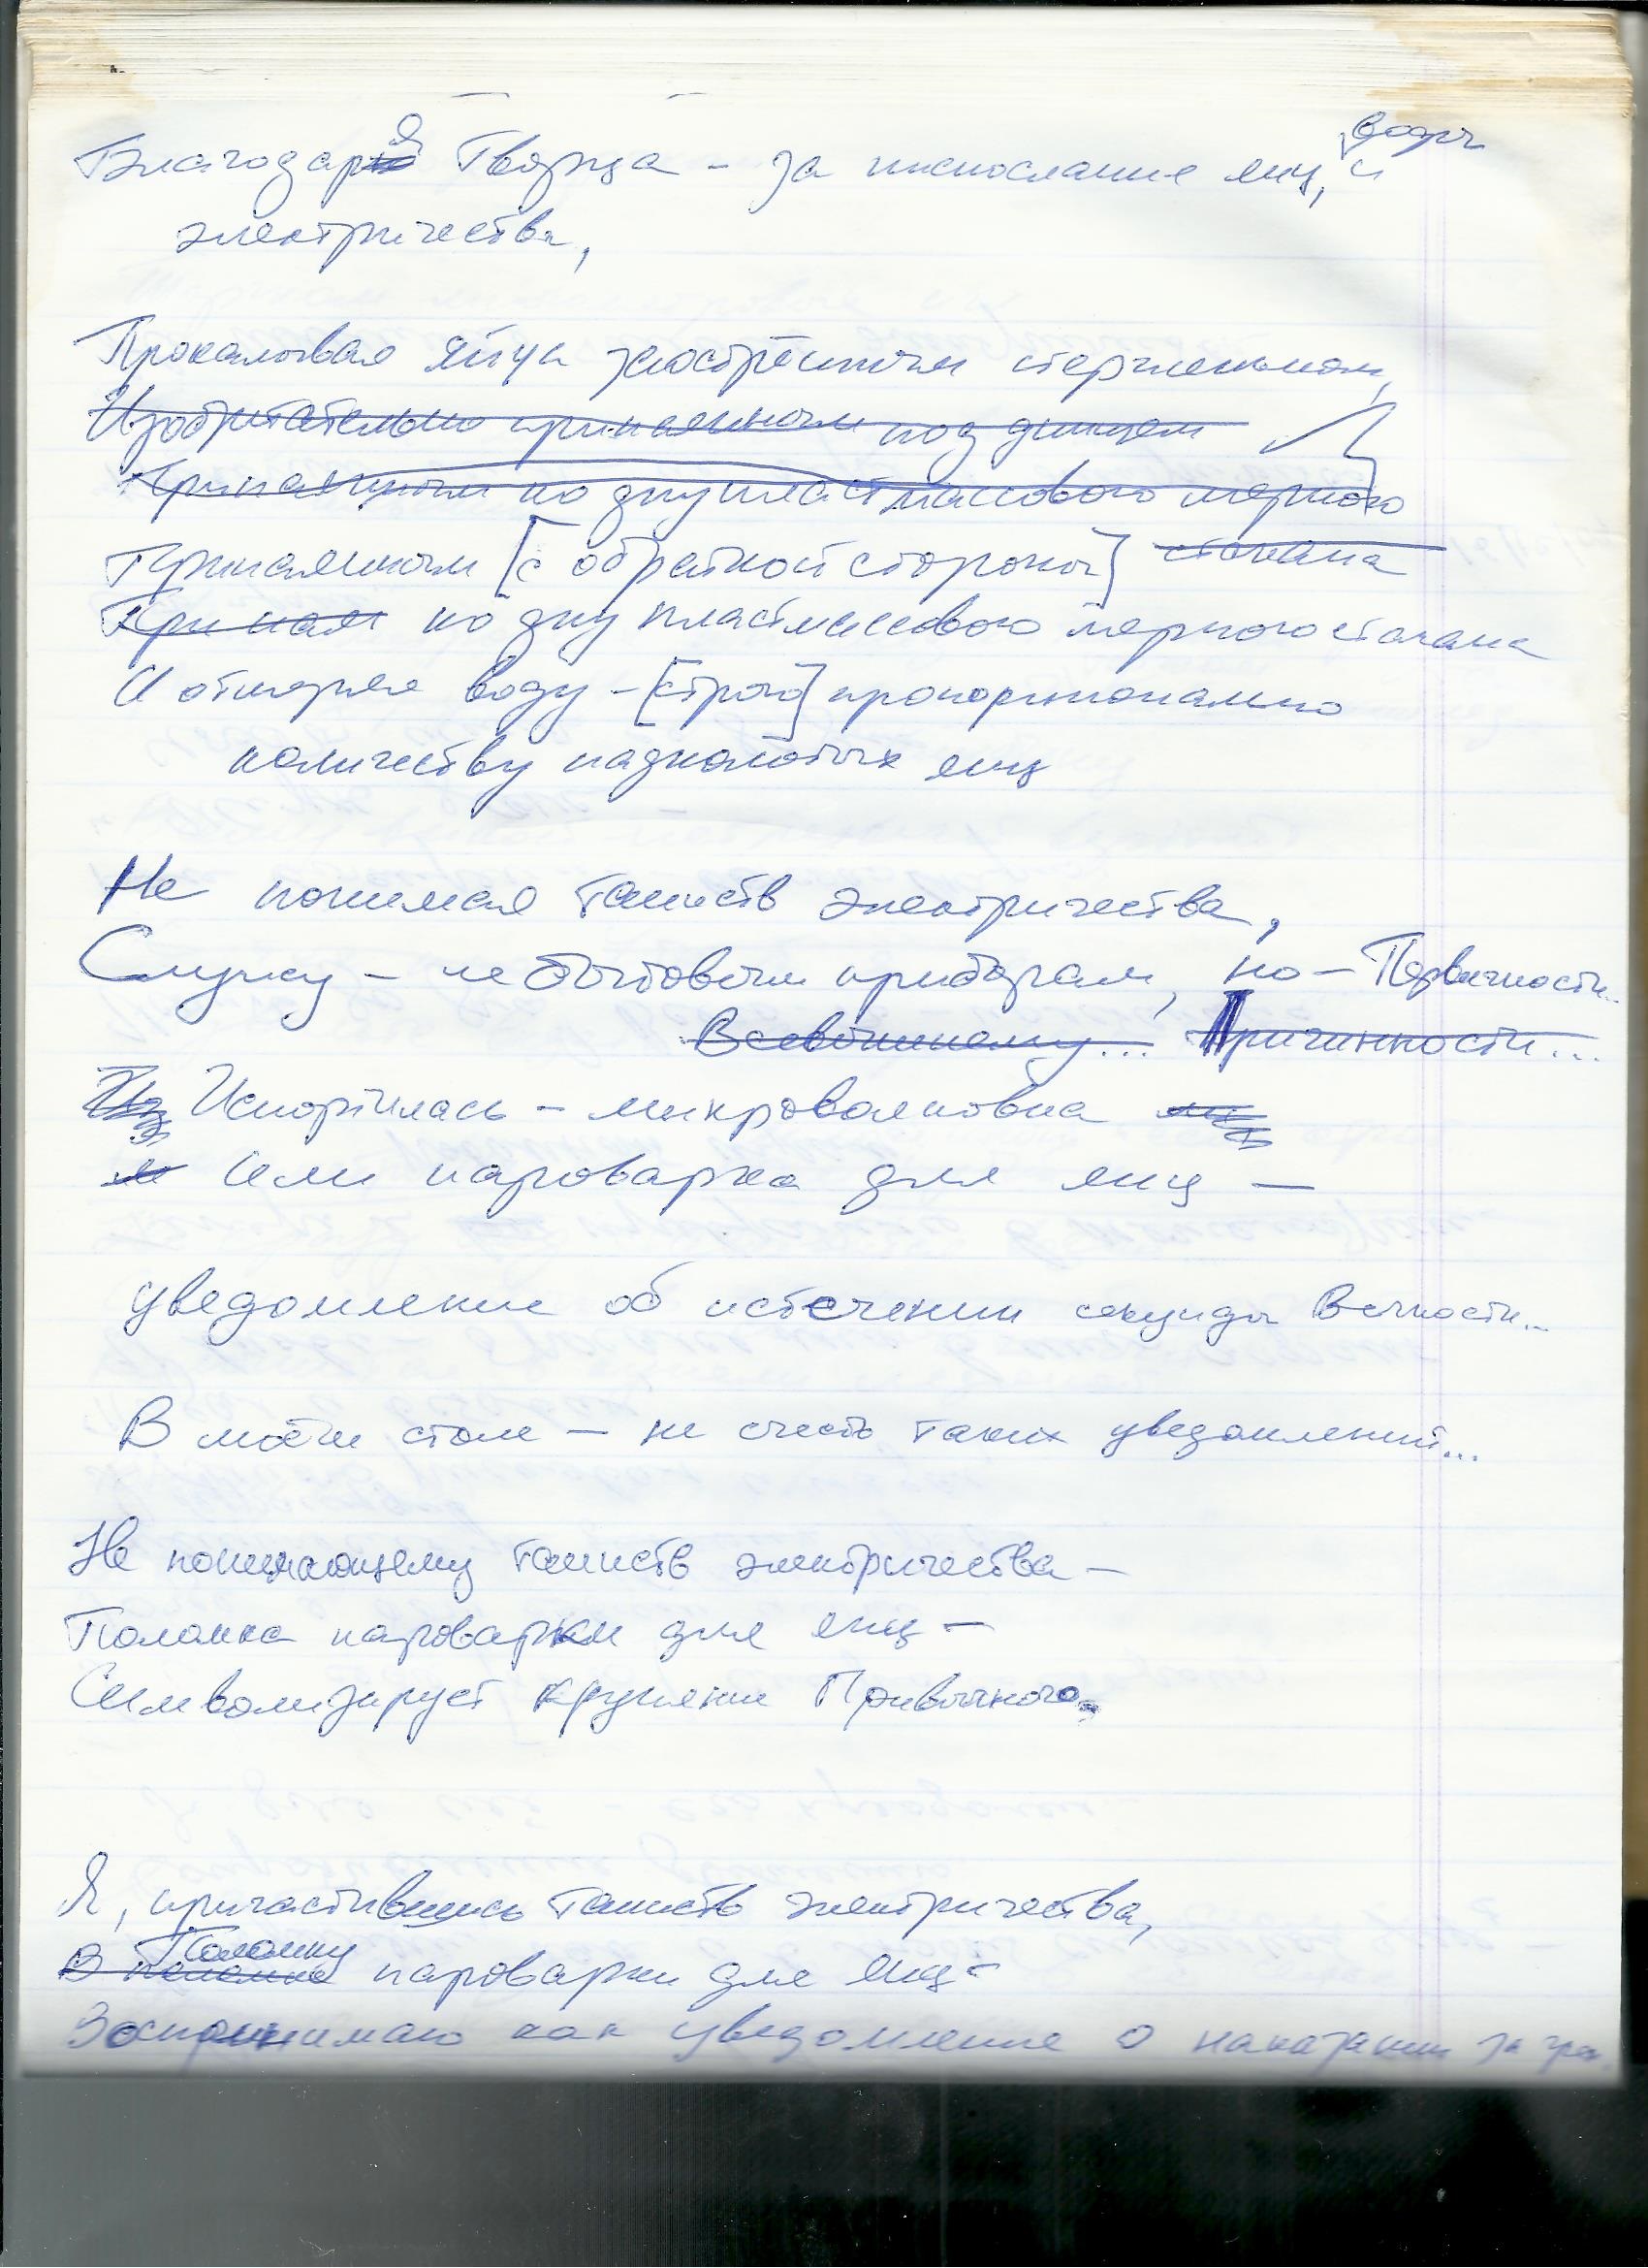 Благодаря Творца – за ниспослание яиц, воды и
электричества,
Прокалывая яйца заострённым стерженьком,
Изобретательно припаянным под днищем
Припаянным ко дну пластмассового мерного
стакана
Припаянным [с обратной стороны]
Припая ко дну пластмассового мерного стакана
И отмеряя воду – [строго] пропорционально
количеству надколотых яиц
Не понимая таинств электричества,
Служу – не бытовым приборам, но – Первичности...
Всевышнему... Причинности...
Испортилась – микроволновка
и Или пароварка для яиц –
уведомление об истечении секунды Вечности...
В моём столе – не счесть таких уведомлений...
Не понимающему таинств электричества –
Поломка пароварки для яиц –
Символизирует крушение Привычного.
Я, причастившись таинств электричества,
Поломку
В поломке пароварки для яиц –
Воспринимаю как уведомление о наказании за